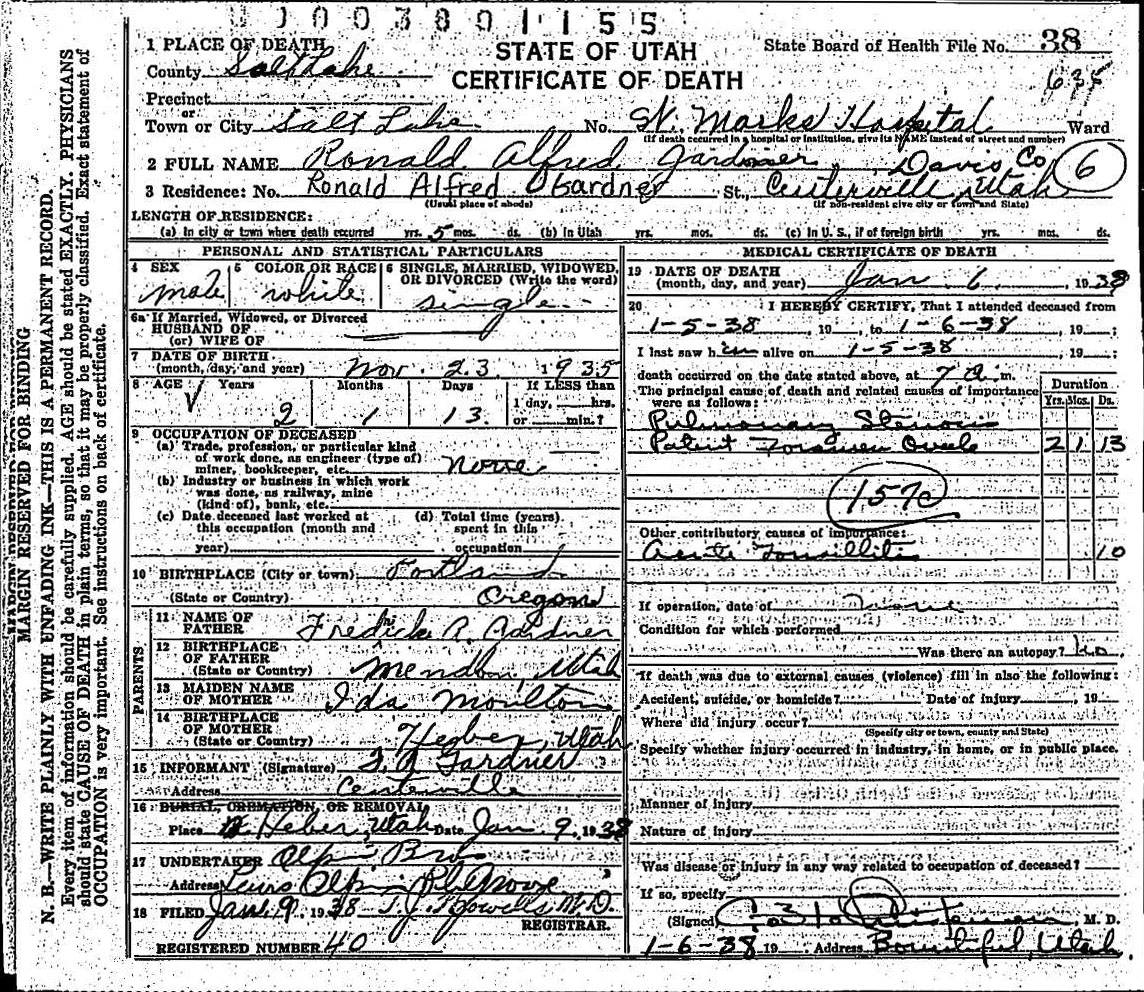 1003801155
STATE OF UTAH
CERTIFICATE OF DEATH
State Board of Health File No. 38
638
1 PLACE OF DEATH
County Salt Lake
Precinct
or
Town or City Salt Lake No. St. Marks Hospital Ward
(If death occurred in a hospital or institution, give its NAME instead of street and number)
2 FULL NAME Ronald Alfred Gardner, Davis Co, 6
3 Residence: No. Ronald Alfred Gardner St., Centerville Utah
(Usual place of abode) (If non-resident give city or town and State)
LENGTH OF RESIDENCE:
(a) In city or town where death occurred yrs. 5 mos. ds. (b) In Utah yrs. mos. ds. (c) In U. S., if of foreign birth yrs. mos. ds.
PERSONAL AND STATISTICAL PARTICULARS
4 SEX 5 COLOR OR RACE 6 SINGLE, MARRIED, WIDOWED, OR DIVORCED (Write the word)
male white single
6a If Married, Widowed, or Divorced
HUSBAND OF
(or) WIFE OF
7 DATE OF BIRTH
(month, day, and year) Nov. 23 1935
8 AGE Years Months Days If LESS than
1 day, hrs.
2 1 13. or min.?
9 OCCUPATION OF DECEASED
(a) Trade, profession, or particular kind
of work done, as engineer (type of)
miner, bookkeeper, etc. None
(b) Industry or business in which work
was done, as railway, mine
(kind of), bank, etc.
(c) Date deceased last worked at (d) Total time (years)
this occupation (month and spent in this
year) occupation
10 BIRTHPLACE (City or town) Portland
(State or Country) Oregon
PARENTS
11 NAME OF
FATHER R. Gardner
12 BIRTHPLACE
OF FATHER
(State or Country) Mendon, Utah
13 MAIDEN NAME
OF MOTHER Ida Moulton
14 BIRTHPLACE
OF MOTHER
(State or Country) Heber, Utah
15 INFORMANT (Signature) F. R. Gardner
Address Centerville
16 BURIAL, CREMATION, OR REMOVAL
Place Heber, Utah Date Jan 9, 1938
17 UNDERTAKER Olpin Bros
Address Olpin Pl Grove
18 FILED Jan 9, 1938 T. J. Howells M.D.
REGISTRAR.
REGISTERED NUMBER 40
MEDICAL CERTIFICATE OF DEATH
19 DATE OF DEATH
(month, day, and year) Jan. 6. 1938
20 I HEREBY CERTIFY, That I attended deceased from
1-5-38, 19 , to 1-6-38, 19 ;
I last saw him alive on 1-5-38, 19 ;
death occurred on the date stated above, at 7 a. m.
The principal cause of death and related causes of importance
were as follows:
Duration
Yrs. Mos. Ds.
Pulmonary Stenosis
Patent Foramen Ovale 2 1 13
157c
Other contributory causes of importance:
Acute Tonsillitis 10
If operation, date of none
Condition for which performed
Was there an autopsy? No.
If death was due to external causes (violence) fill in also the following:
Accident, suicide, or homicide? Date of injury , 19
Where did injury occur?
(Specify city or town, county and State)
Specify whether injury occurred in industry, in home, or in public place.
Manner of injury
Nature of injury
Was disease or injury in any way related to occupation of deceased?
If so, specify
(Signed) M. D.
1-6-38 19 Address Bountiful, Utah.
MARGIN RESERVED FOR BINDING
N. B.—WRITE PLAINLY WITH UNFADING INK—THIS IS A PERMANENT RECORD.
Every item of information should be carefully supplied. AGE should be stated EXACTLY. PHYSICIANS
should state CAUSE OF DEATH in plain terms, so that it may be properly classified. Exact statement of
OCCUPATION is very important. See instructions on back of certificate.